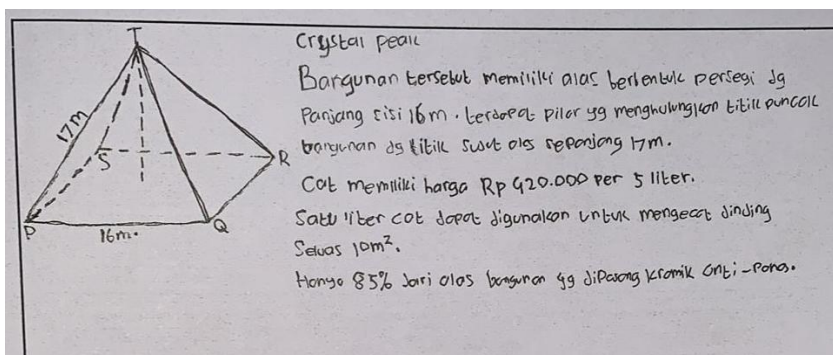 T
17m
S
R
P
16m.
Q
Crystal peak
Bangunan tersebut memiliki alas berbentuk persegi dg
Panjang sisi 16m. terdapat pilar yg menghubungkan titik puncak
bangunan dg titik sudut alas sepanjang 17m.
Cat memiliki harga Rp 420.000 per 5 liter.
Satu liter cat dapat digunakan untuk mengecat dinding
Seluas 10m².
Hanya 85% dari alas bangunan yg dipasang kramik anti-panas.